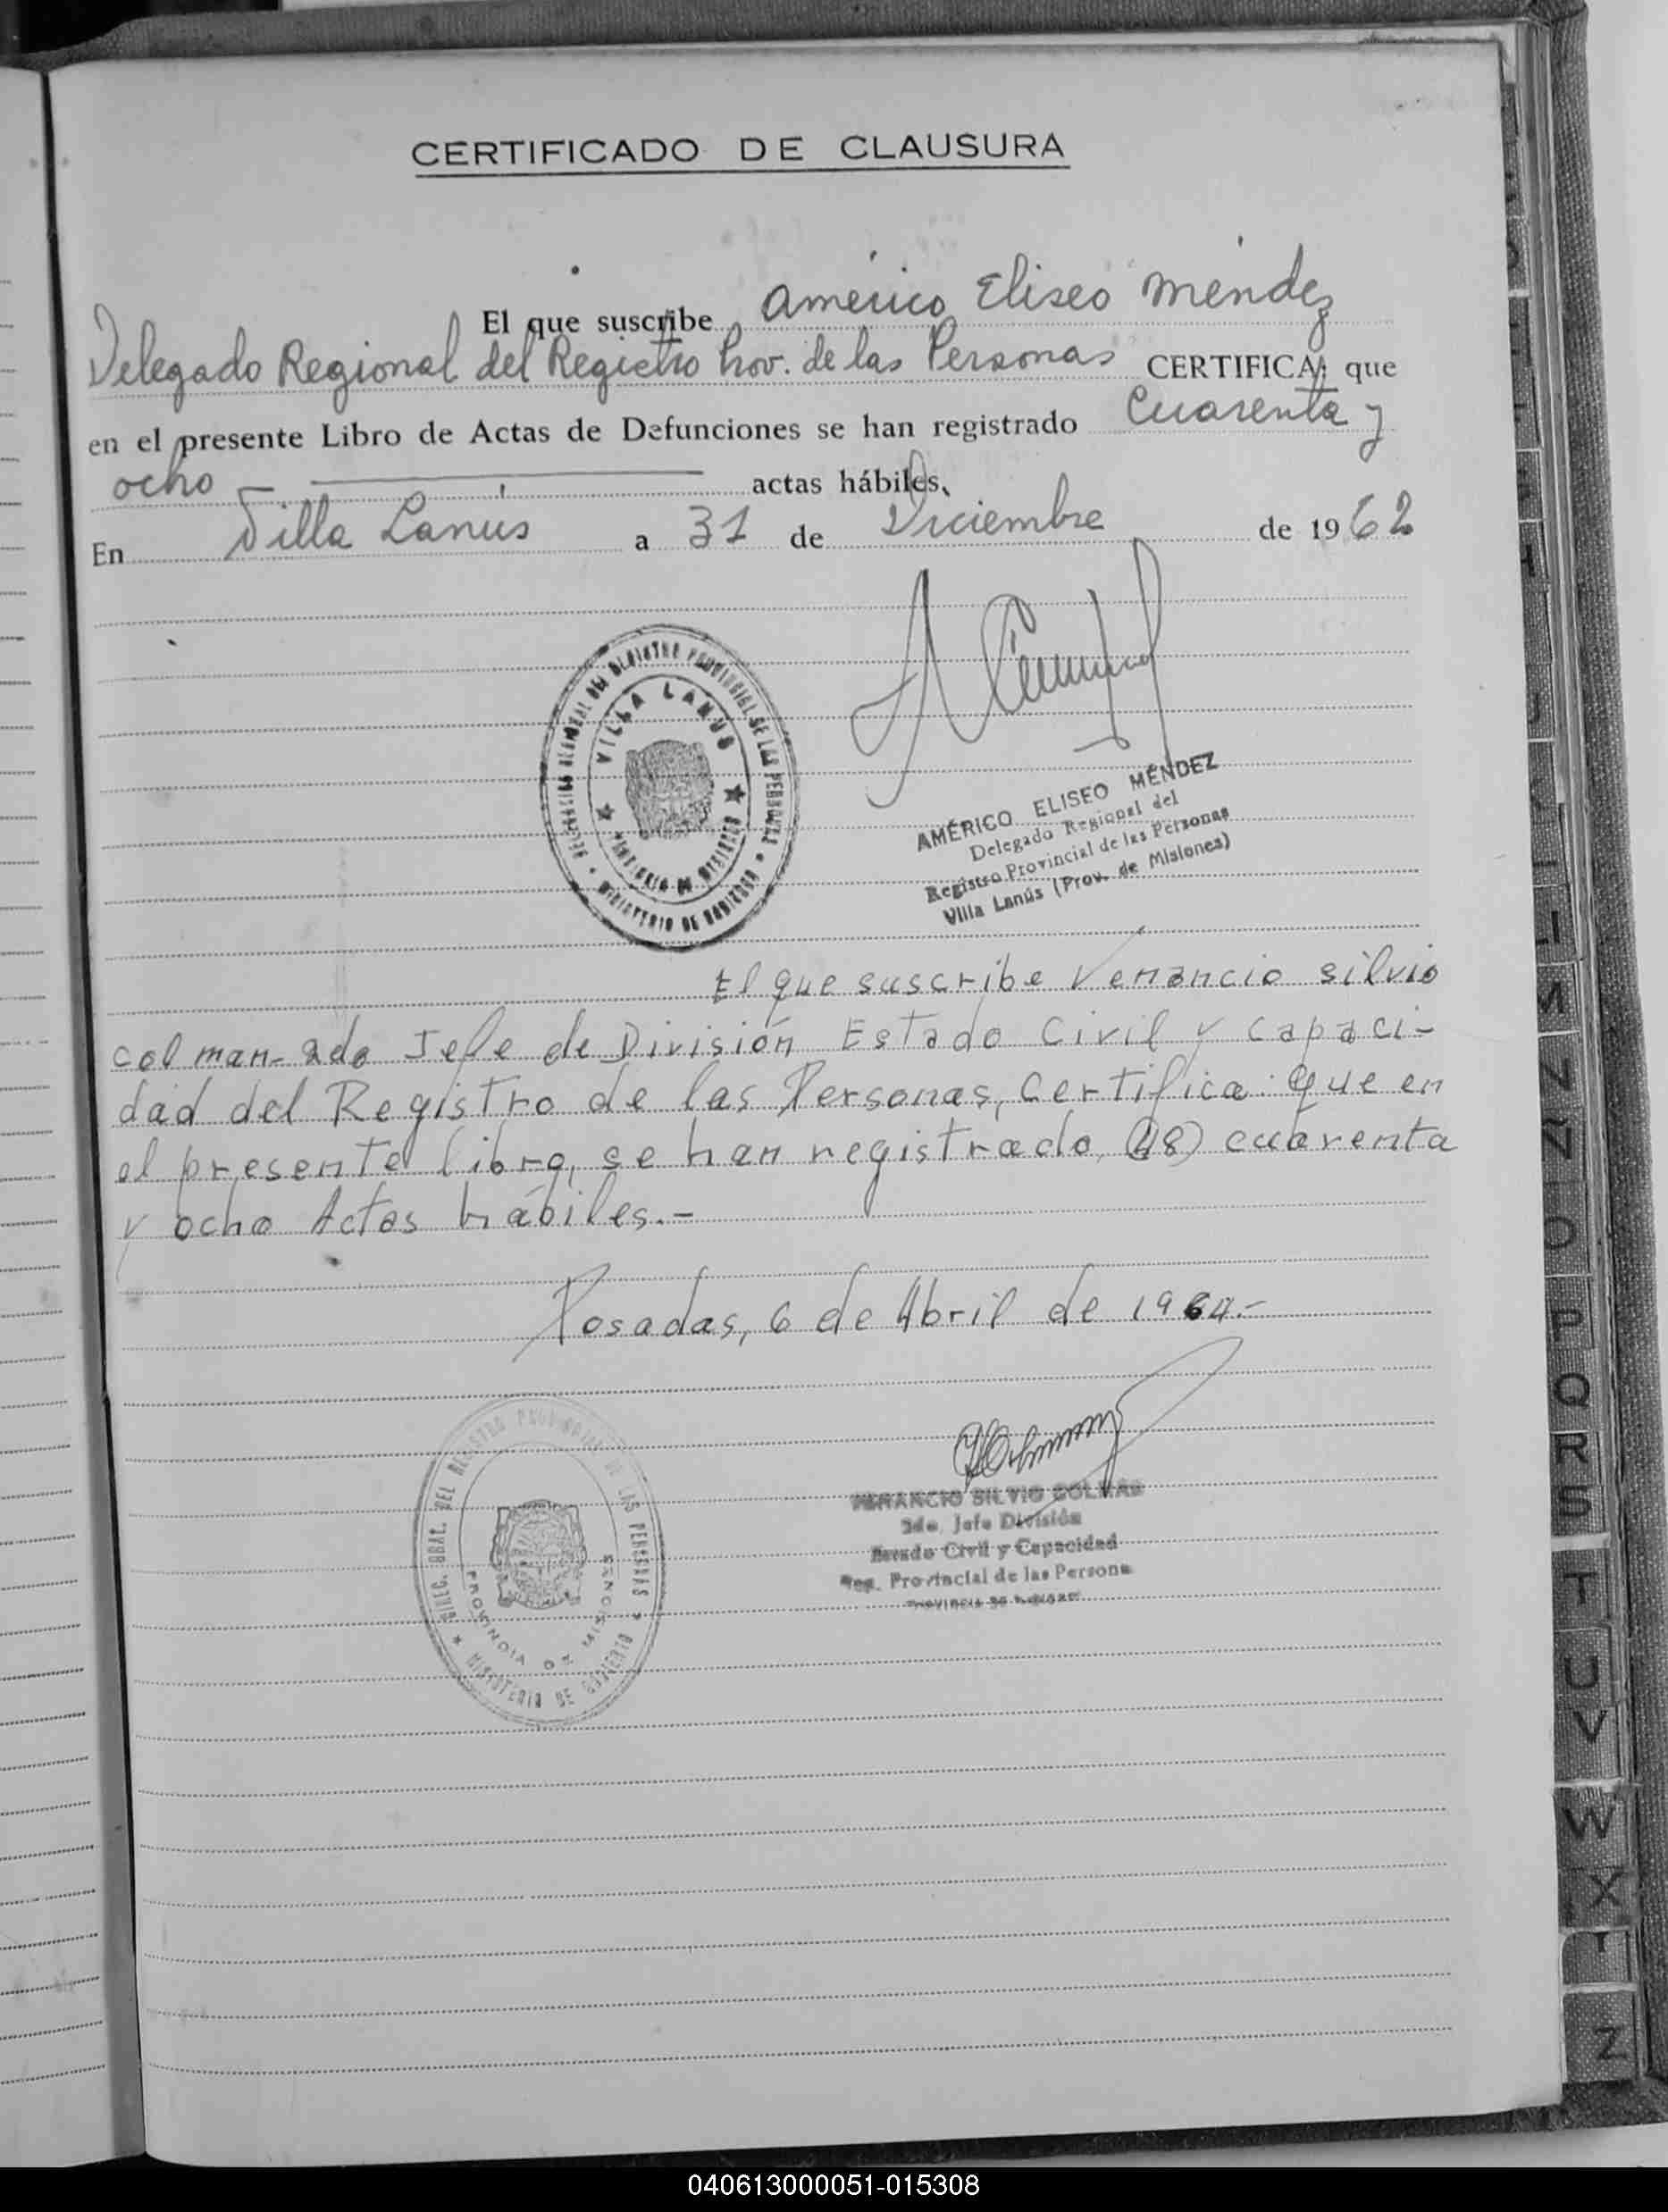 CERTIFICADO DE CLAUSURA
El que suscribe Américo Eliseo Méndez
Delegado Regional del Registro Prov. de las Personas CERTIFICA: que
en el presente Libro de Actas de Defunciones se han registrado Cuarenta y
ocho — actas hábiles.
En Villa Lanús a 31 de Diciembre de 1962
DEL REGISTRO PROVINCIAL DE LAS PERSONAS
MINISTERIO DE GOBIERNO
VILLA LANUS
PROVINCIA DE MISIONES
AMÉRICO ELISEO MÉNDEZ
Delegado Regional del
Registro Provincial de las Personas
Villa Lanús (Prov. de Misiones)
El que suscribe Venancio Silvio
Colman- 2do Jefe de División Estado Civil y Capaci-
dad del Registro de las Personas, Certifica: que en
el presente libro, se han registrado, (48) cuarenta
y ocho Actas hábiles.-
Posadas, 6 de Abril de 1964.-
DIREC. GRAL. DEL REGISTRO PROVINCIAL DE LAS PERSONAS
MINISTERIO DE GOBIERNO
PROVINCIA DE MISIONES
VENANCIO SILVIO COLMAN
2do. Jefe División
Estado Civil y Capacidad
Reg. Provincial de las Persona
M
N
Ñ
O
P
Q
R
S
T
U
V
W
X
Z
040613000051-015308